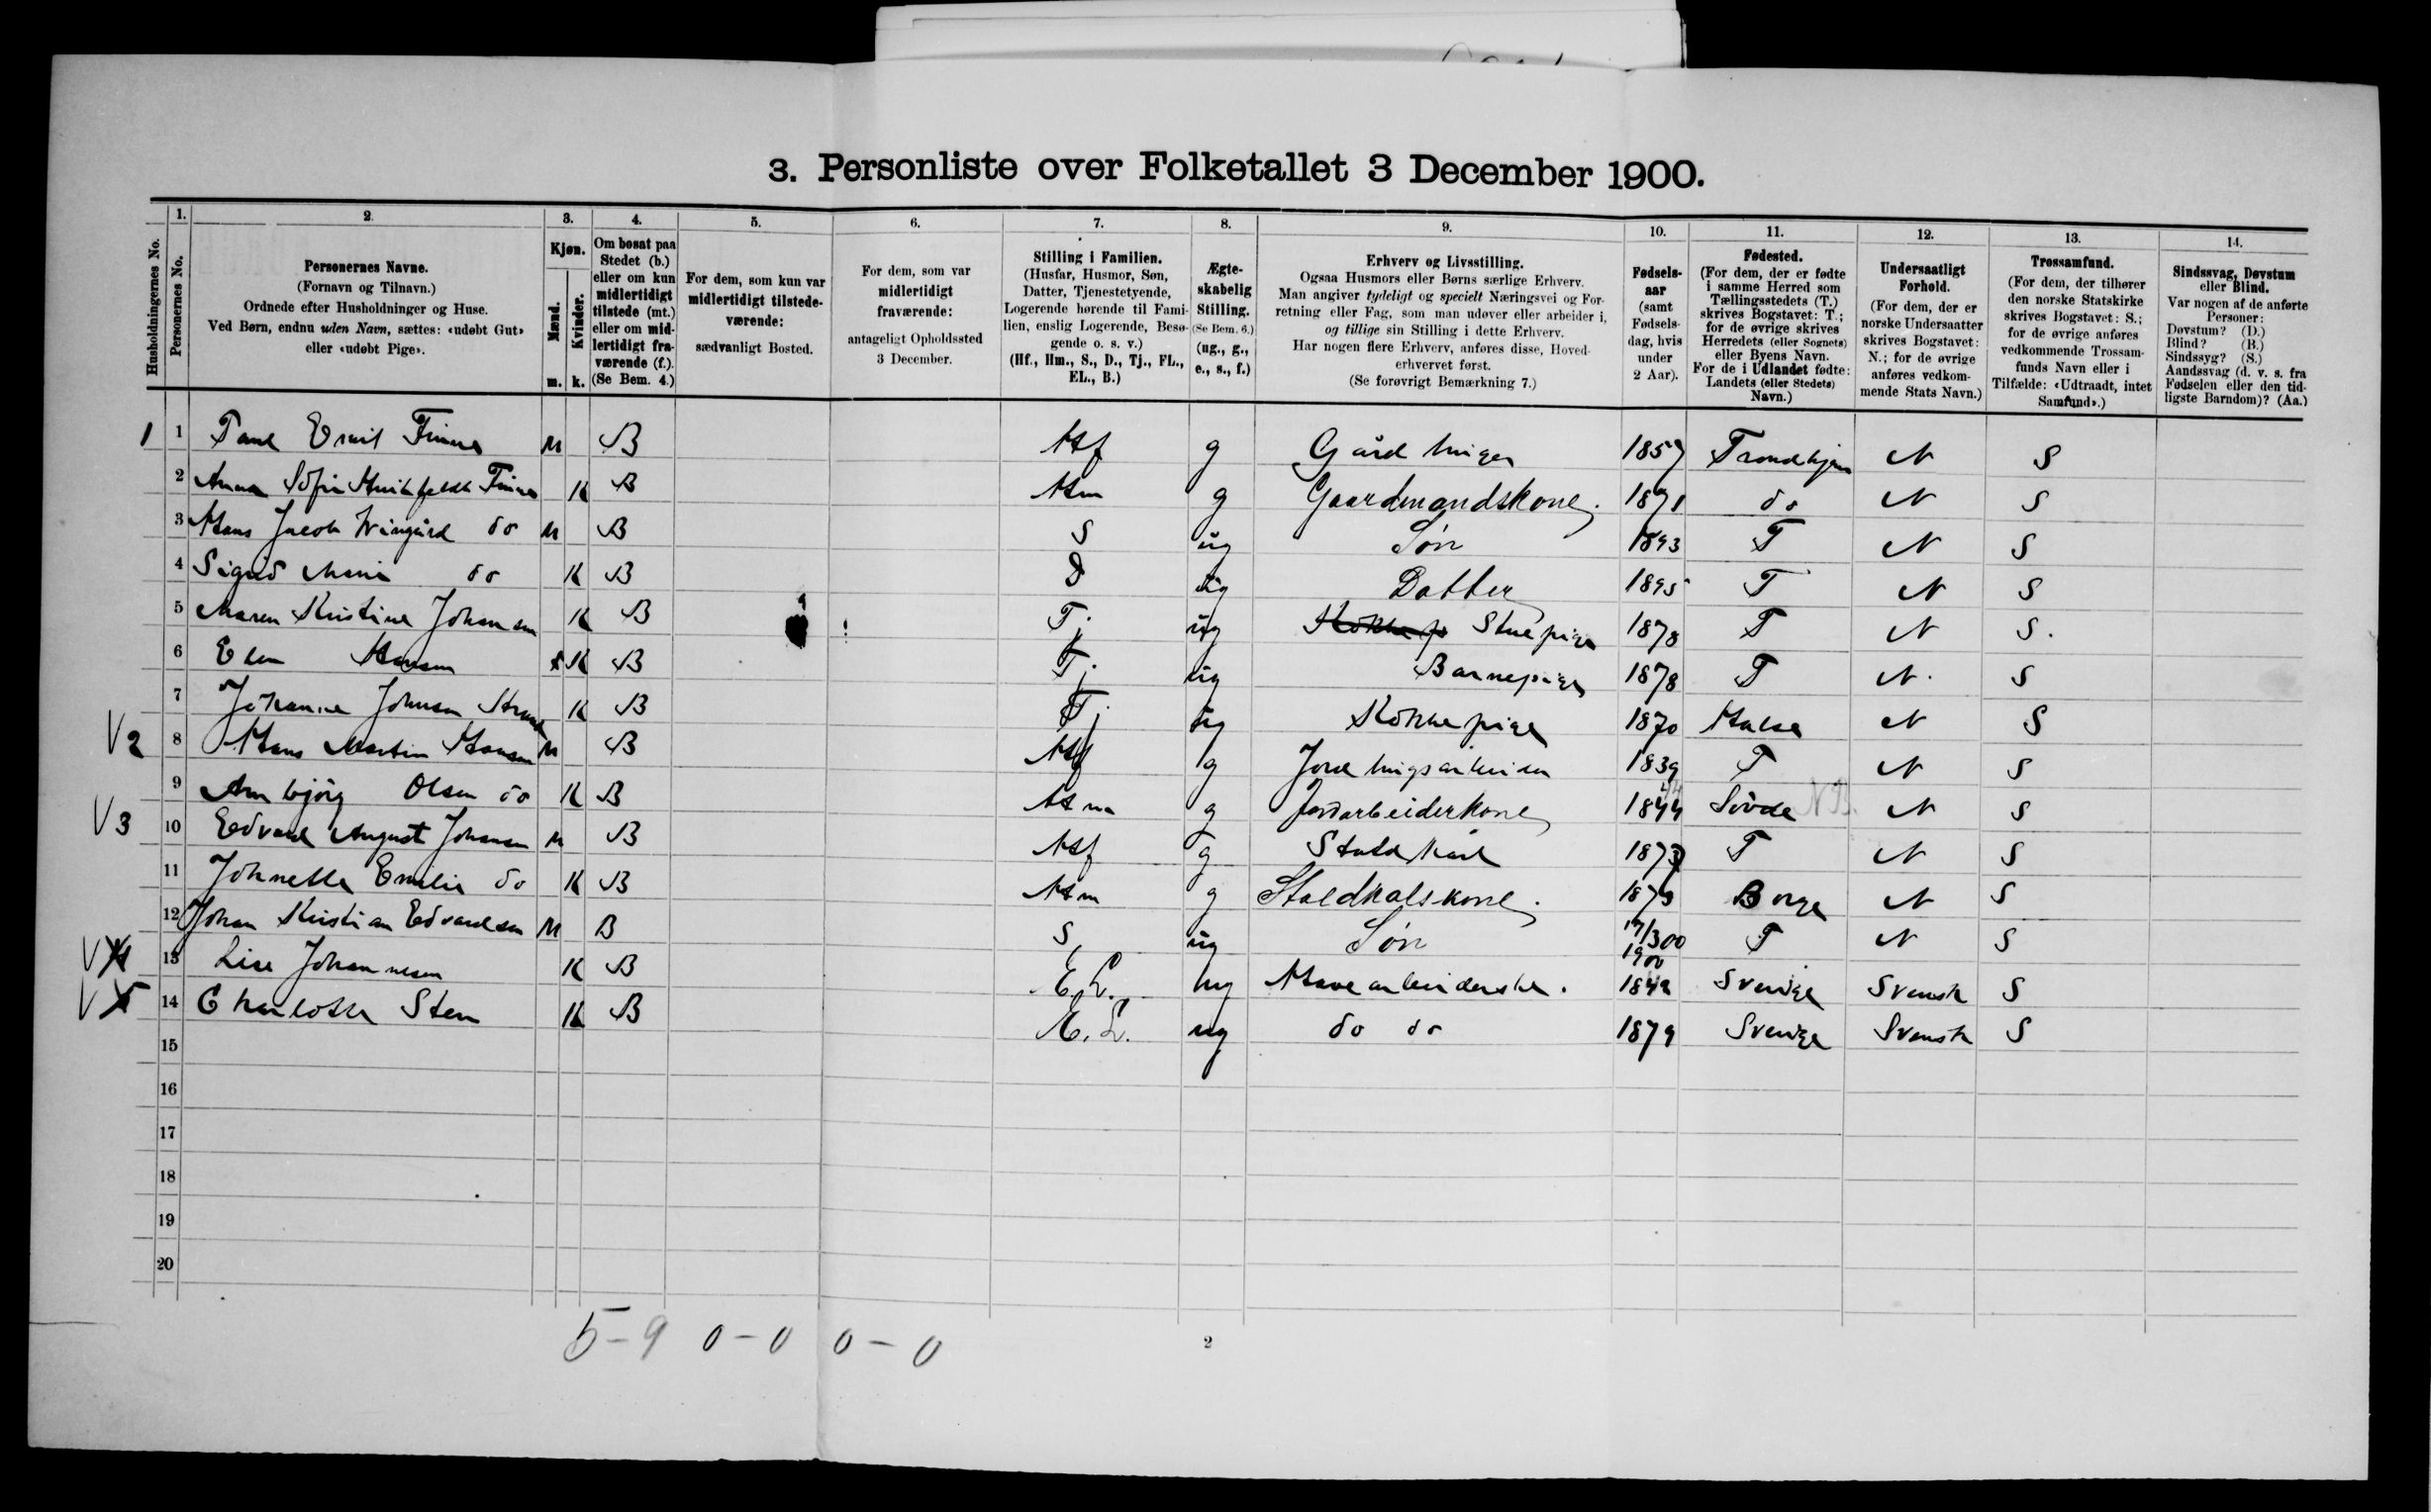 3. Personliste over Folketallet 3 December 1900.
Husholdningernes No.
1. Personernes No.
2. Personernes Navne.
(Fornavn og Tilnavn.)
Ordnede efter Husholdninger og Huse.
Ved Børn, endnu uden Navn, sættes: «udøbt Gut»
eller «udøbt Pige».
3. Kjøn.
Mænd. m.
Kvinder. k.
4. Om bosat paa
Stedet (b.)
eller om kun
midlertidigt
tilstede (mt.)
eller om mid-
lertidigt fra-
værende (f.).
(Se Bem. 4.)
5. For dem, som kun var
midlertidigt tilstede-
værende:
sædvanligt Bosted.
6. For dem, som var
midlertidigt
fraværende:
antageligt Opholdssted
3 December.
7. Stilling i Familien.
(Husfar, Husmor, Søn,
Datter, Tjenestetyende,
Logerende hørende til Fami-
lien, enslig Logerende, Besø-
gende o. s. v.)
(Hf., Hm., S., D., Tj., FL.,
EL., B.)
8. Ægte-
skabelig
Stilling.
(Se Bem. 6.)
(ug., g.,
e., s., f.)
9. Erhverv og Livsstilling.
Ogsaa Husmors eller Børns særlige Erhverv.
Man angiver tydeligt og specielt Næringsvei og For-
retning eller Fag, som man udøver eller arbeider i,
og tillige sin Stilling i dette Erhverv.
Har nogen flere Erhverv, anføres disse, Hoved-
erhvervet først.
(Se forøvrigt Bemærkning 7.)
10. Fødsels-
aar
(samt
Fødsels-
dag, hvis
under
2 Aar).
11. Fødested.
(For dem, der er fødte
i samme Herred som
Tællingsstedets (T.)
skrives Bogstavet: T.;
for de øvrige skrives
Herredets (eller Sognets)
eller Byens Navn.
For de i Udlandet fødte:
Landets (eller Stedets)
Navn.)
12. Undersaatligt
Forhold.
(For dem, der er
norske Undersaatter
skrives Bogstavet:
N.; for de øvrige
anføres vedkom-
mende Stats Navn.)
13. Trossamfund.
(For dem, der tilhører
den norske Statskirke
skrives Bogstavet: S.;
for de øvrige anføres
vedkommende Trossam-
funds Navn eller i
Tilfælde: «Udtraadt, intet
Samfund».)
14. Sindssvag, Døvstum
eller Blind.
Var nogen af de anførte
Personer:
Døvstum? (D.)
Blind? (B.)
Sindssyg? (S.)
Aandssvag (d. v. s. fra
Fødselen eller den tid-
ligste Barndom)? (Aa.)
1 1 Paul Emil Finne M B Hf g Gårdbruger 1857 Trondhjem N S
2 Anna Sofie Finne K B Hm g Gaardmandskone. 1871 do N S
3 Hans Jacob Wingård do M B S ug Søn 1893 T N S
4 Sigrid Marie do K B D ug Datter 1895 T N S
5 Maren Kristine Johansen K B Tj. ug Stuepige 1878 T N S.
6 Elen Hansen K B Tj. ug Barnepige 1878 T N. S
7 Johanne Johnsen K B Tj ug Kokkepige 1870 Halsa N S
V2 8 Hans Martin Hansen M B Hf g Jordbrugsarbeider 1839 T N S
9 Arnbjörg Olsen do K B Hm g Jordarbeiderkone 1844 N S
V3 10 Edvard August Johansen M B Hf g Staldkarl 1873 T N S
11 Johnette Emilie do K B Hm g Staldkalskone. 1879 Borge N S
12 Johan Kristian Edvardsen M B S ug Søn 17/3 00 1900 T N S
V4 13 Lise Johannesen K B E.L. ug Havearbeiderske. 1849 Sverige Svensk S
V5 14 Charlotte Sten K B E.L. ug do do 1879 Sverige Svensk S
15
16
17
18
19
20
5-9 0-0 0-0
2